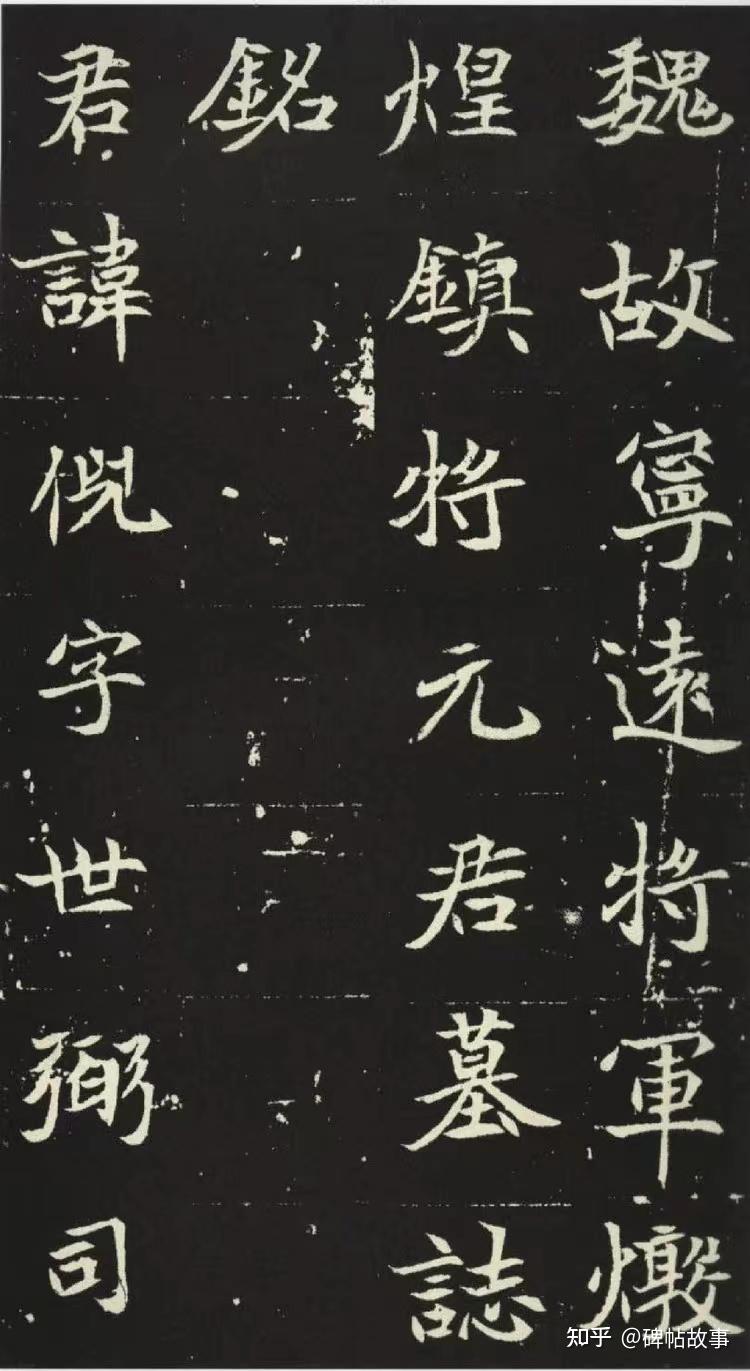 魏故寧遠將軍燉
煌鎮將元君墓誌
銘
君諱倪字世弼司
知乎 @碑帖故事